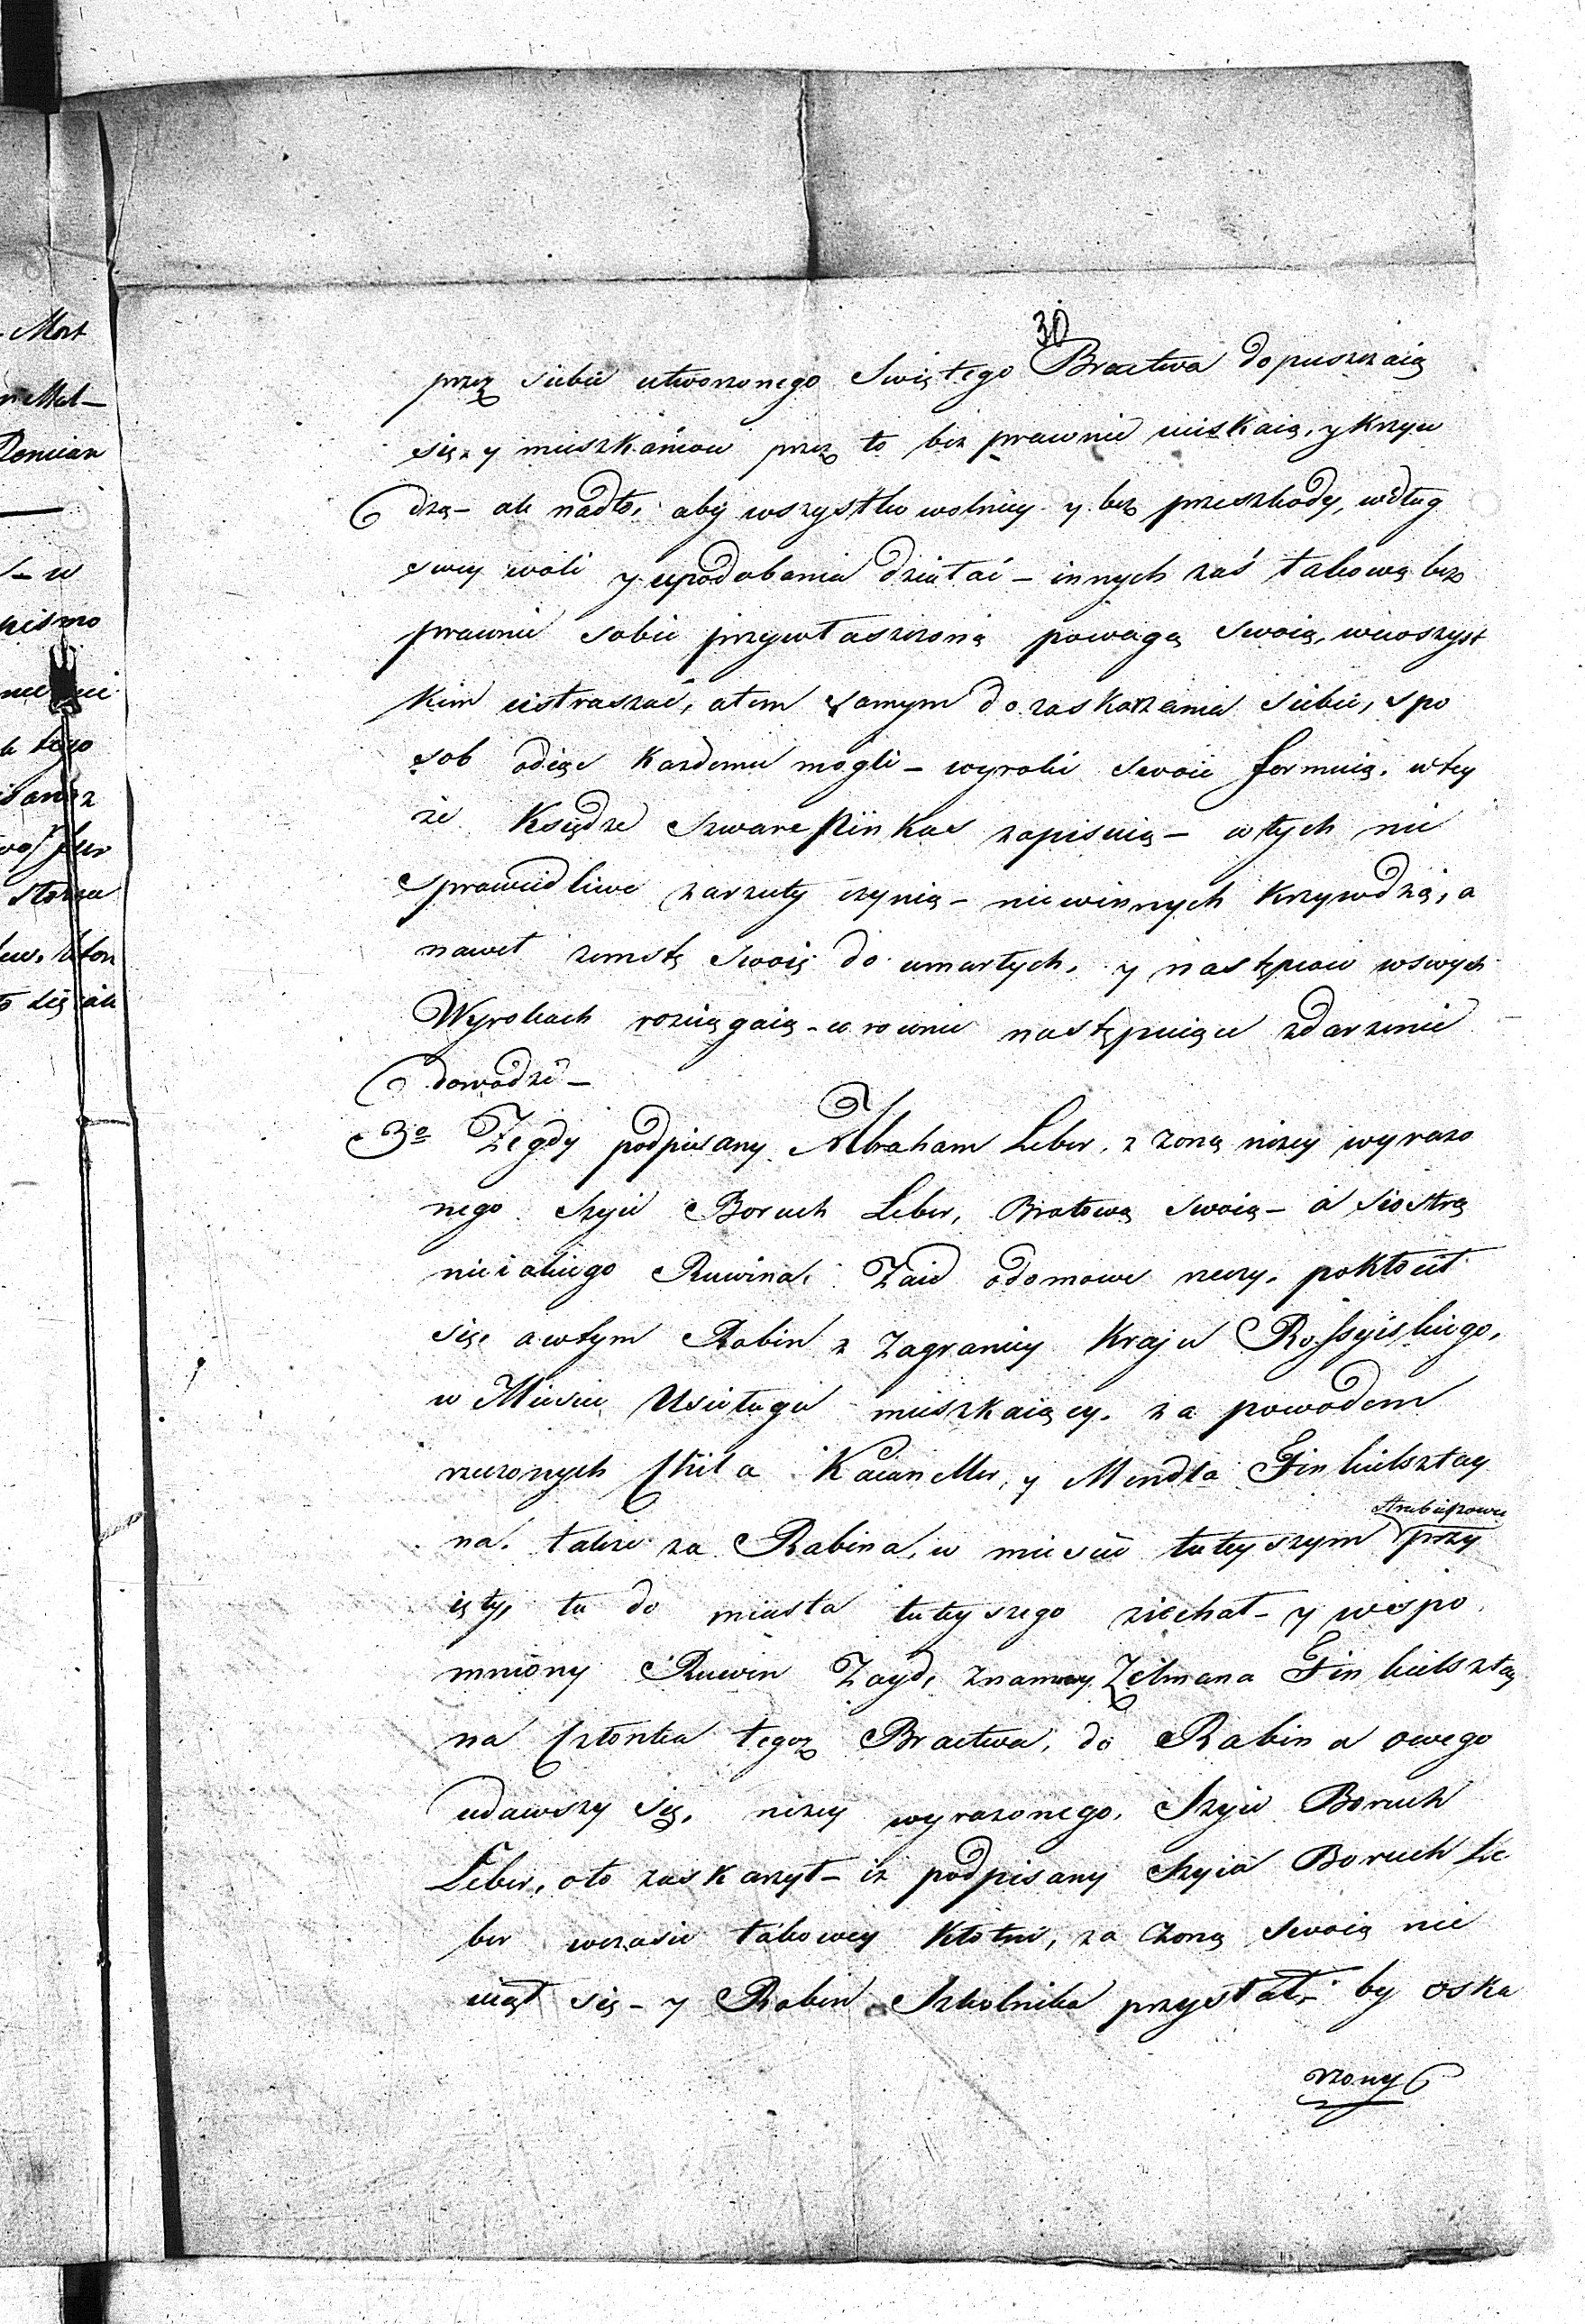 30
przez siebie utworzonego Swiętego Bractwa dopuszczaią
się, y mieszkańcow przez to bez prawnie uciskaią, y krzyw
dzą – ale nadto, aby wszystko wolniey y bez przeszkody, według
swey woli y upodobania działać – innych zaś takową bez
prawnie sobie przywłaszczoną powagą swoią, wewszyst
kim ustraszać, atem samym do zaskarżenia siebie, spo
sob odiąć każdemu mogli – wyroki swoie formuią, w tey
że Księdze zwane Pinkas zapisuią – w tych nie
sprawiedliwe zarzuty czynią – niewinnych krzywdzą, a
nawet zemstę swoię do umarłych, y następcow w swych
Wyrokach rozciągaią – co rownie następuiące zdarzenie
dowodzi –
3o Że gdy podpisany Abraham Leber, z żoną niżey wyrażo
nego Szyi Boruch Leber, Bratową swoią – a siostrą
nieiakiego Ruwina Zaid o domowe rzeczy pokłócił
się, a w tym Rabin z Zagranicy Kraju Rossyiskiego,
w Mieście Uściługu mieszkaiący, za powodem
rzeczonych Chila Kaian Mer, y Mendla Finkielsztay
na, także za Rabina, w mieście tuteyszym Hrubieszowie przy
ięty, tu do miasta tuteyszego ziechał – y wspo
mniony Ruwin Zayd, z namowy Zelmana Finkielsztay
na Członka tegoż Bractwa, do Rabina owego
udawszy się, niżey wyrażonego, Szyię Boruch
Leber, oto zaskarżył – iż podpisany Szyia Boruch Le
ber w czasie takowey kłotni, za żoną swoią nie
uiął się – y Rabin Szkolnika przysłał, by oska
rżony